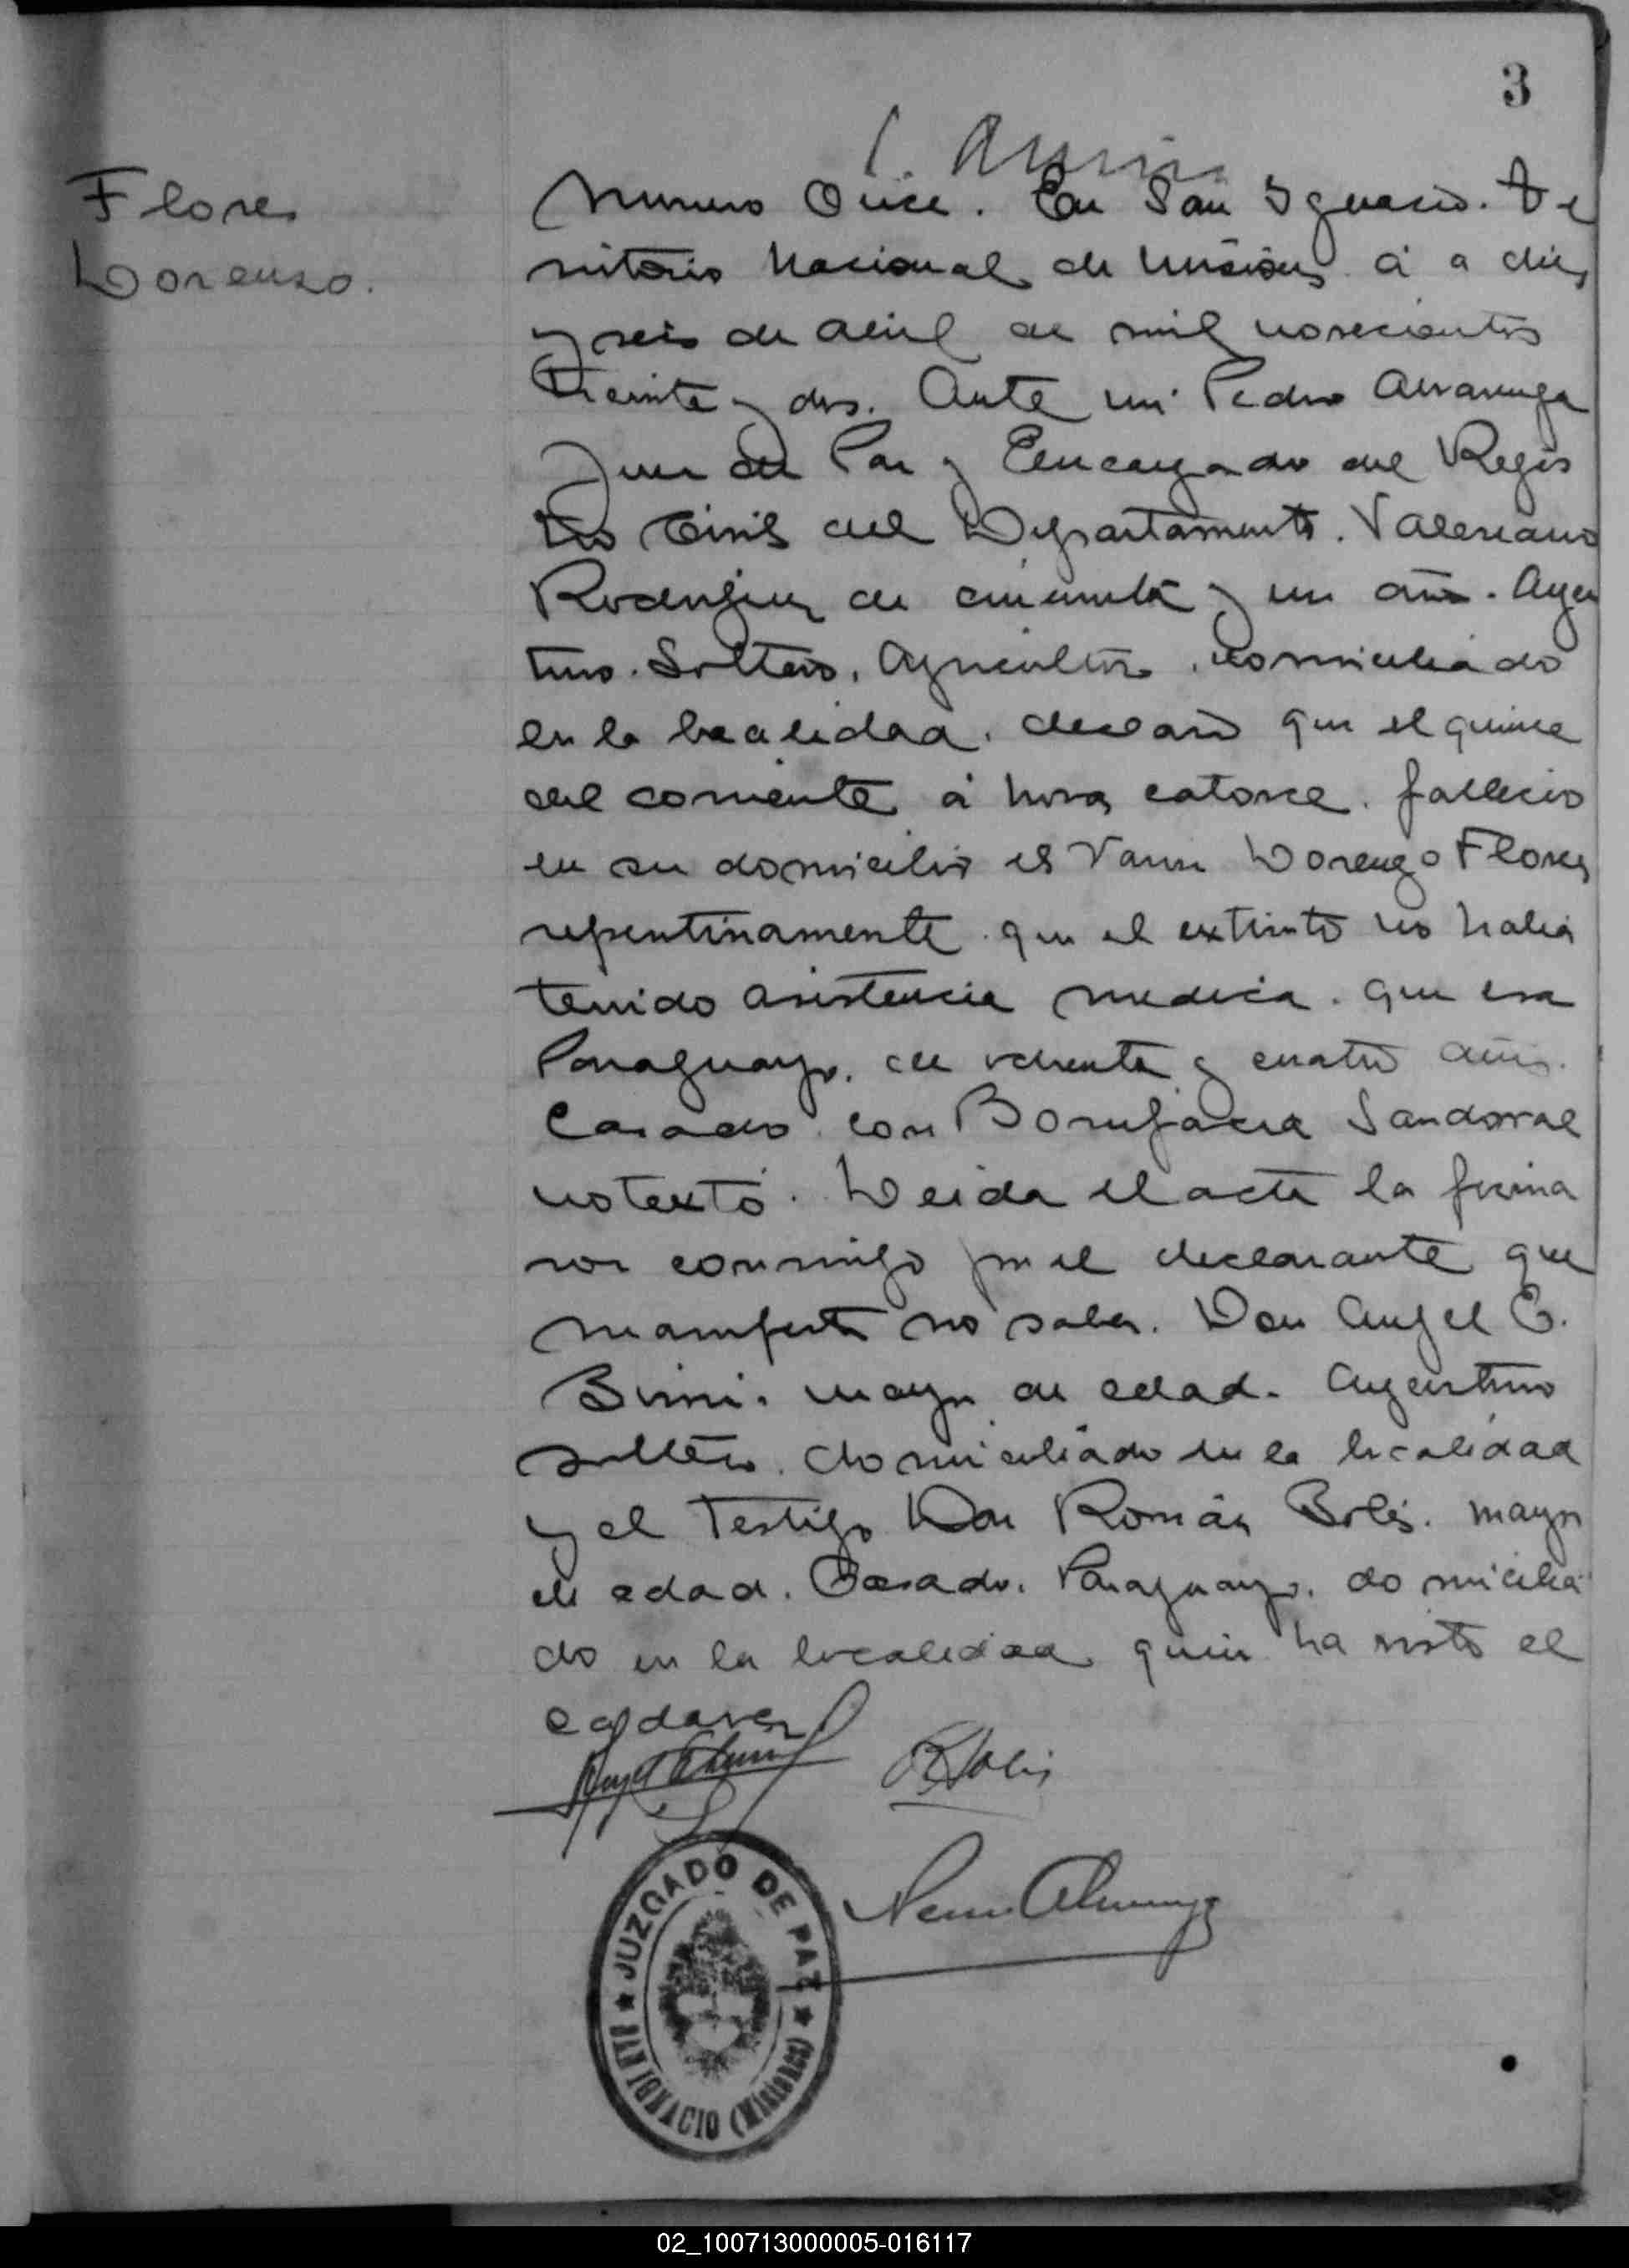 3
Flores
Lorenzo.
Numero Once. En San Ignacio. Te
rritorio Nacional de Misiones á a diez
y seis de abril de mil novecientos
treinta y dos. Ante mi Pedro Alvarenga
Juez de Paz y Encargado del Regis
tro Civil del Departamento. Valeriano
Rodriguez de cincuenta y un años. Argen
tino. Soltero. Agricultor. domiciliado
en la localidad. declaró que el quince
del corriente á horas catorce. fallecio
en su domicilio el Varon Lorenzo Flores
repentinamente. que el extinto no habia
tenido asistencia medica. que era
Paraguayo. de ochenta y cuatro años.
Casado con Bonifacia Sandoval
no testó. Leida el acta la firma
ron conmigo por el declarante que
manifesta no saber. Don Angel E.
mayor de edad. Argentino
soltero. domiciliado en la localidad
y el Testigo Don Román Solis. mayor
de edad. Casado. Paraguayo. domicilia
do en la localidad quien ha visto el
cadaver
R Solis
JUZGADO DE PAZ
SAN IGNACIO (Misiones)
02_100713000005-016117